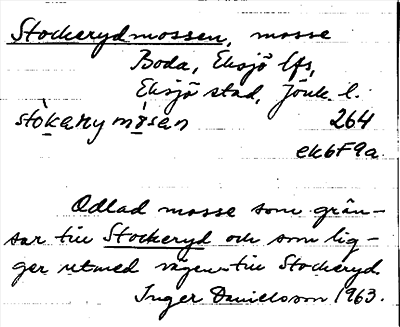 Stockerydmossen, mosse
Boda, Eksjö lfs,
Eksjö stad, Jönk. l.
stòkary mósan 264
ek6F9a
Odlad mosse som grän-
sar till Stockeryd och som lig-
ger utmed vägen till Stockeryd.
Inger Danielsson 1963.